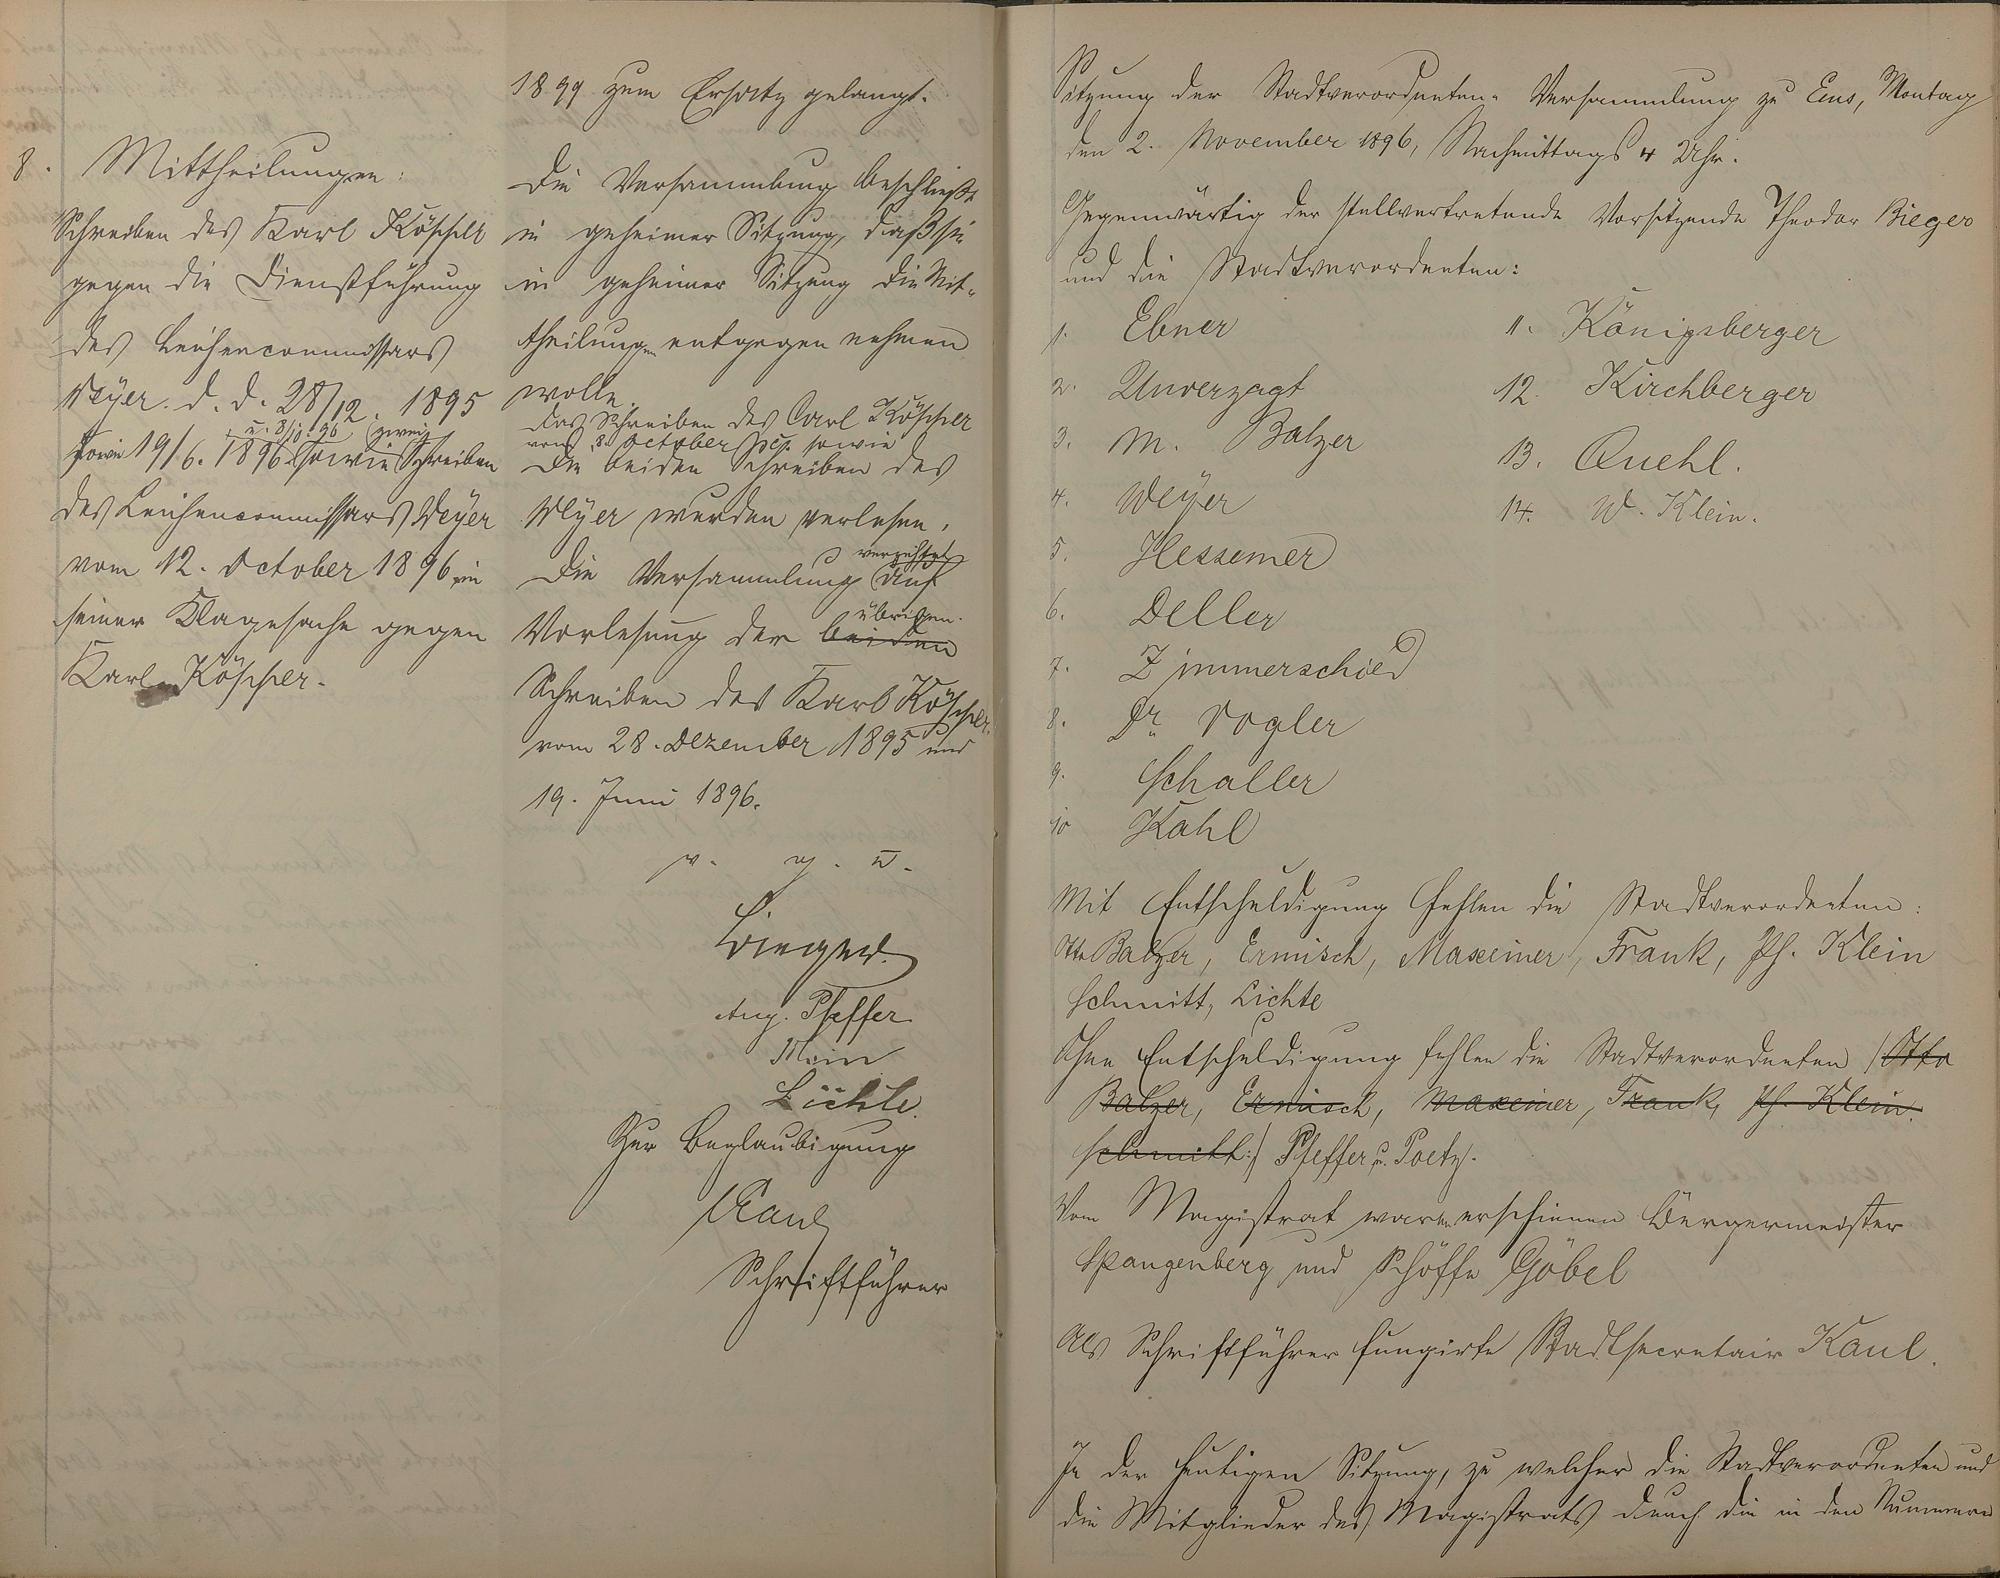 8. Mittheilungen:
Schreiben des Karl Köppler
gegen die Dienstführung
des Leichencommissars
Weyer d. d. 28/12. 1895
u. 8/10. 96 zwei
sowie 19/6. 1896. sowie Schreiben
des Leichencommissars Weyer
vom 12. October 1896 in
seiner Klagesache gegen
Karl
1899 zum Ersatz gelangt.
Die Versammlung beschließt
in geheimer Sitzung, daß sie
in geheimer Sitzung die Mit-
theilungen entgegen nehmen
wolle.
Das Schreiben des Carl
vom 8. October sowie
Die beiden Schreiben des
Weyer wurden verlesen.
verzichtet
Die Versammlung auf
übrigen
Vorlesung der beiden
Schreiben des Karl
vom 28. Dezember 1895 und
19. Juni 1896.
v. g. u.
Bieger.
Aug. Pfeffer
Lichte.
Zur Beglaubigung
Kaul
Schriftführer
Sitzung der Stadtverordneten-Versammlung zu Ems, Montag
den 2. November 1896, Nachmittags 4 Uhr.
Gegenwärtig der stellvertretende Vorsitzende Theodor Bieger
und die Stadtverordneten:
1. Ebner
2. Unverzagt
3. M. Balzer
4. Weyer
5. Hessemer
6. Deller
7. Zimmerschied
8. Dr. Vogler
9. Schaller
10 Kahl
11. Königsberger
12. Kirchberger
13. Quehl.
14. W. Klein.
Mit Entschuldigung fehlen die Stadtverordneten:
Otto Balzer, Ermisch, Maxeiner, Frank, Ph. Klein
Schmitt, Lichte
Ohne Entschuldigung fehlen die Stadtverordneten /Otto
Balzer, Ermisch, Maxeiner, Frank, Ph. Klein.
Schmitt:/ Pfeffer u. Poetz.
Vom Magistrat waren erschienen Bürgermeister
Spangenberg und Schöffe Göbel
Als Schriftführer fungirte Stadtsecretair Kaul.
In der heutigen Sitzung, zu welcher die Stadtverordneten und
die Mitglieder des Magistrats durch die in den Nummern